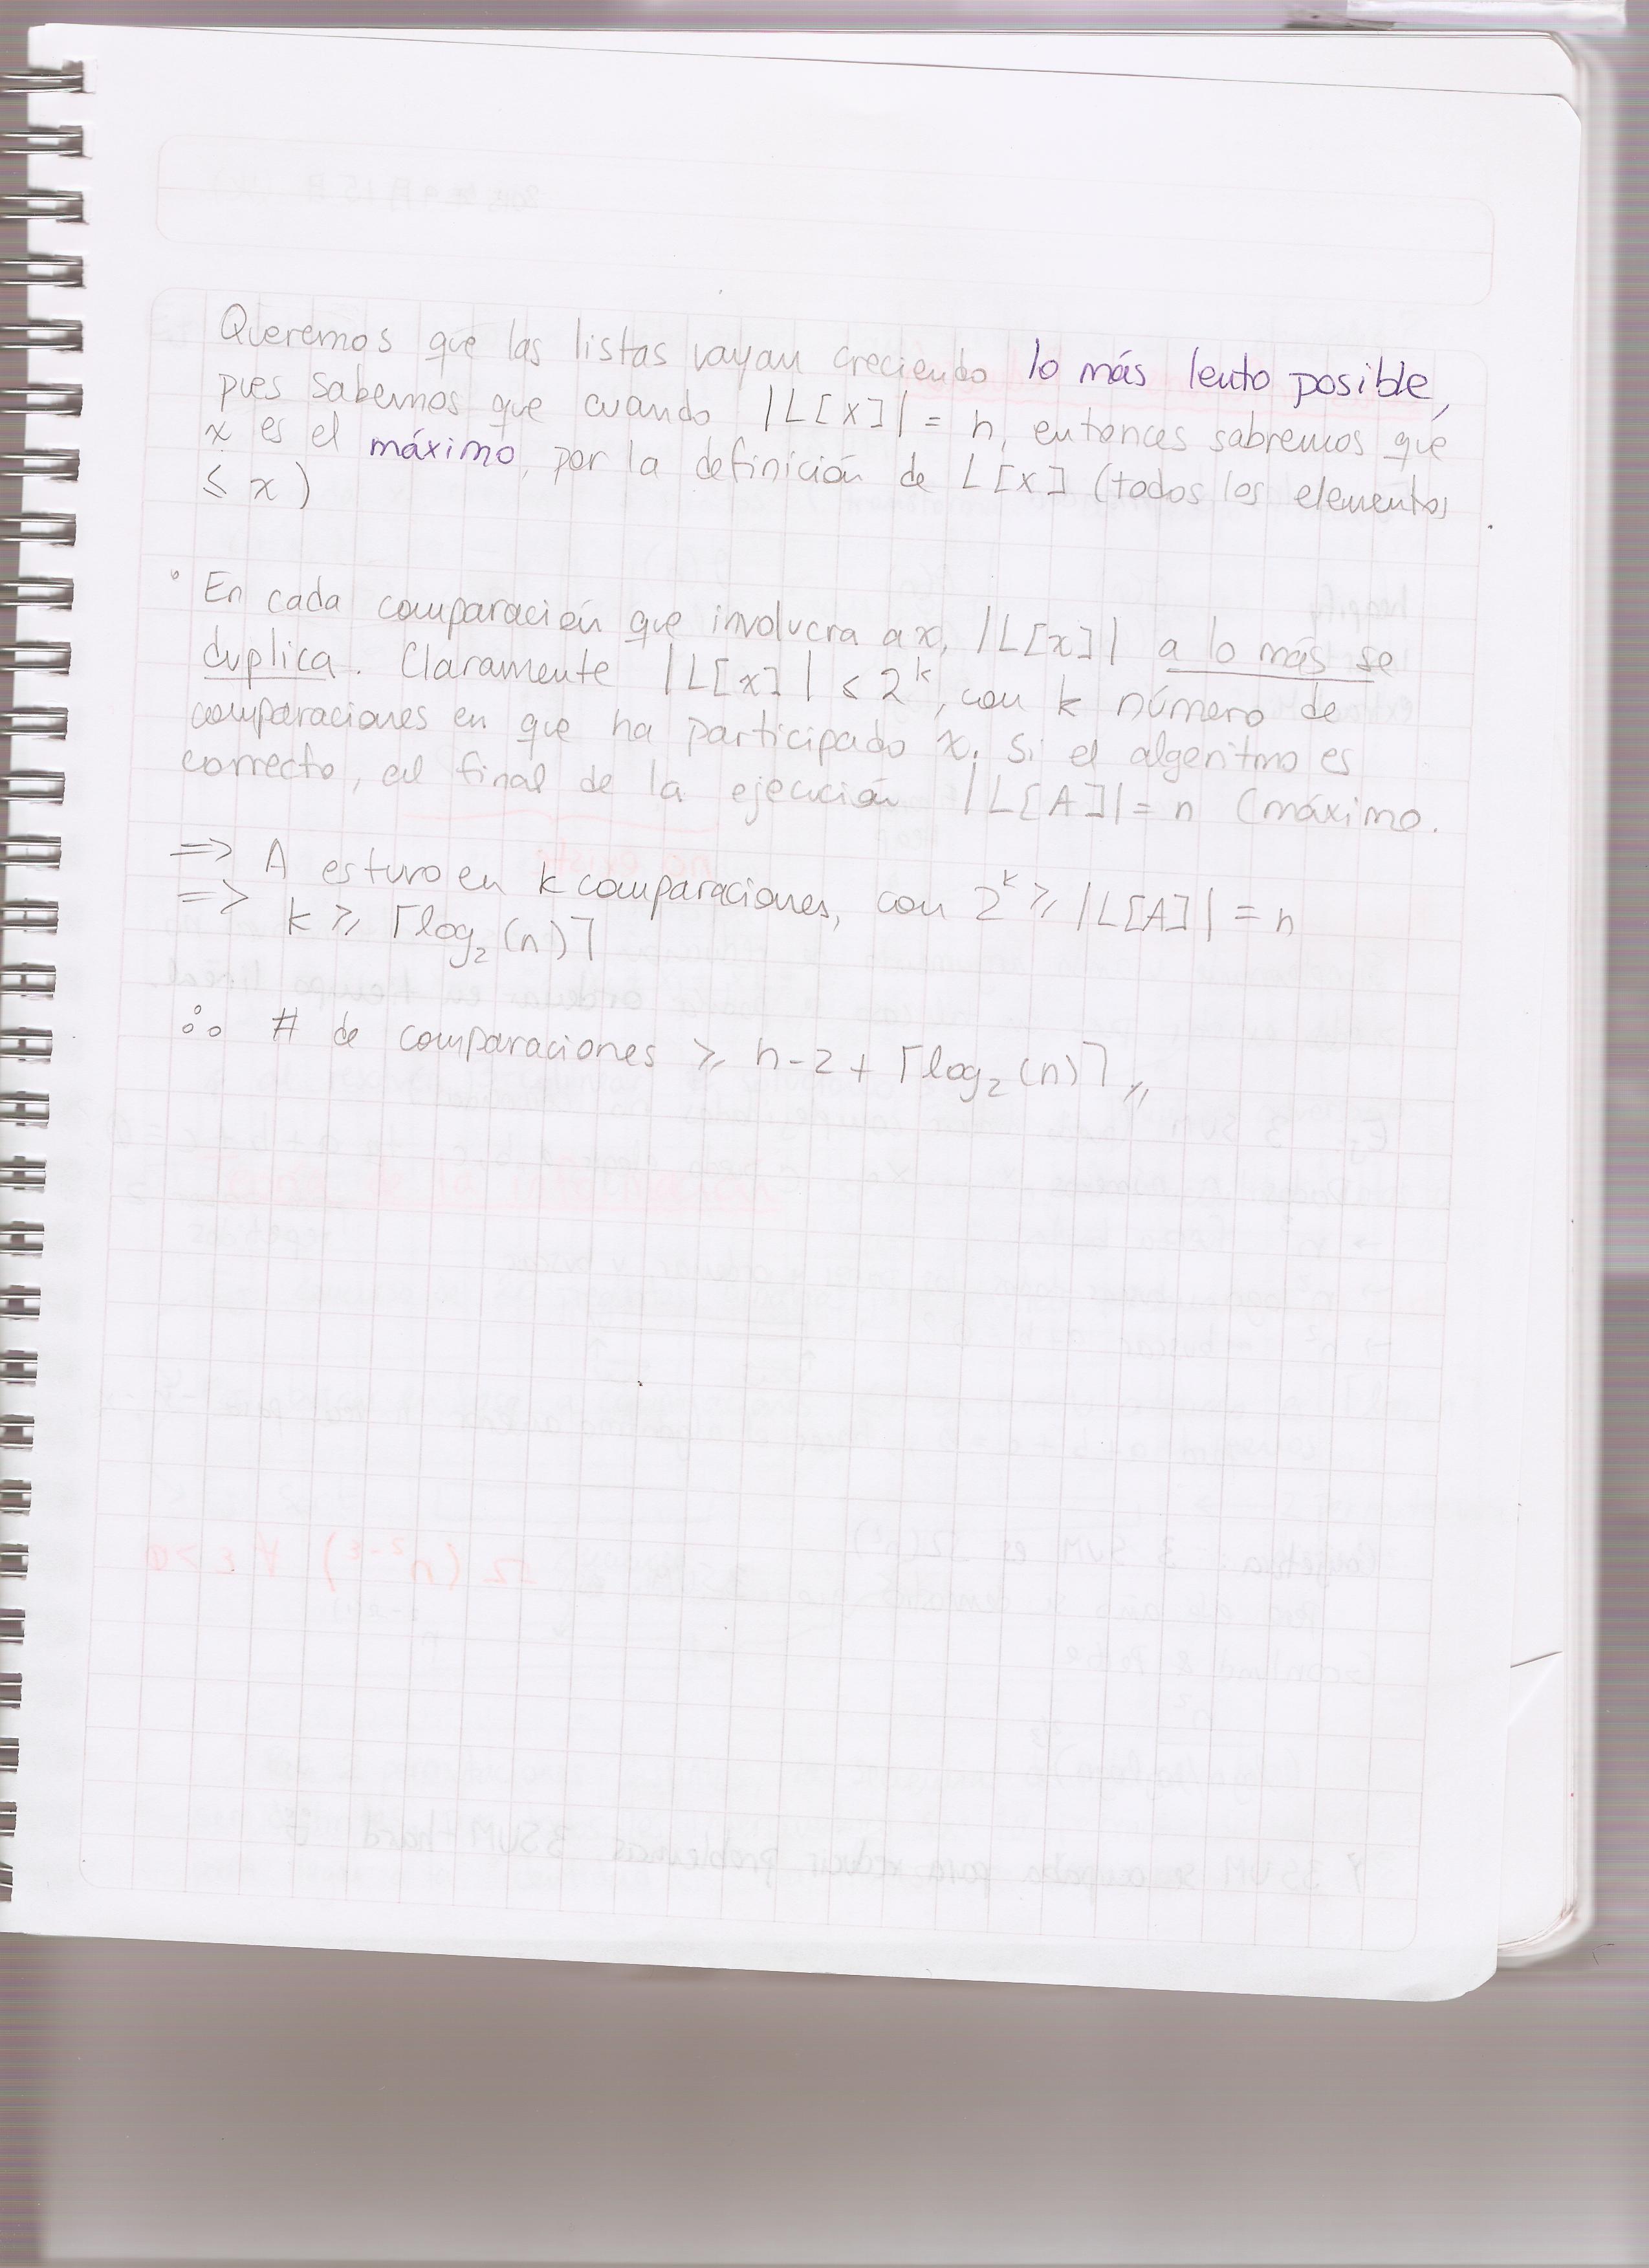 Queremos que las listas vayan creciendo lo más lento posible,
pues sabemos que cuando |L[x]| = n, entonces sabremos que
x es el máximo, por la definición de L[x] (todos los elementos
≤ x)
• En cada comparación que involucra a x, |L[x]| a lo más se
duplica. Claramente |L[x]| ≤ 2^k, con k número de
comparaciones en que ha participado x. Si el algoritmo es
correcto, al final de la ejecución |L[A]| = n (máximo.
=> A estuvo en k comparaciones, con 2^k ≥ |L[A]| = n
=> k ≥ ⌈log₂(n)⌉
∴ # de comparaciones ≥ n-2 + ⌈log₂(n)⌉